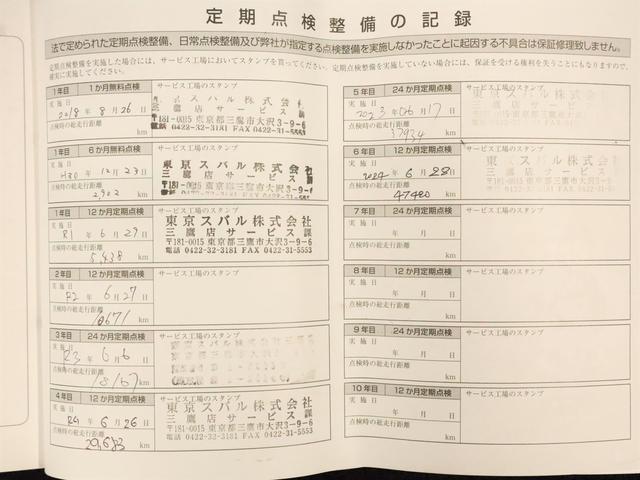 定期点検整備の記録
法で定められた定期点検整備、日常点検整備及び弊社が指定する点検整備を実施しなかったことに起因する不具合は保証修理致しません。
定期点検整備を実施した場合には、サービス工場においてスタンプを貰ってください。定期点検整備を実施していない場合には、保証を受ける権利を失うこともなりますので、
確実に実施してください。
1年目 1か月無料点検 サービス工場のスタンプ
実施日
2018年8月26日
点検時の総走行距離
km
東京スバル株式会社
三鷹店サービス課
〒181-0015 東京都三鷹市大沢3-9-6
電話 0422-32-3181 FAX 0422-31-5553
1年目 6か月無料点検 サービス工場のスタンプ
実施日
H30年12月23日
点検時の総走行距離
2,902 km
東京スバル株式会社
三鷹店サービス課
〒181-0015 東京都三鷹市大沢3-9-6
電話 0422-32-3181 FAX 0422-31-5553
1年目 12か月定期点検 サービス工場のスタンプ
実施日
R1年6月29日
点検時の総走行距離
5,438 km
東京スバル株式会社
三鷹店サービス課
〒181-0015 東京都三鷹市大沢3-9-6
電話 0422-32-3181 FAX 0422-31-5553
2年目 12か月定期点検 サービス工場のスタンプ
実施日
R2年6月27日
点検時の総走行距離
10671 km
3年目 24か月定期点検 サービス工場のスタンプ
実施日
R3年6月6日
点検時の総走行距離
18167 km
東京スバル株式会社
4年目 12か月定期点検 サービス工場のスタンプ
実施日
R4年6月26日
点検時の総走行距離
29,683 km
東京スバル株式会社
三鷹店サービス課
〒181-0015 東京都三鷹市大沢3-9-6
電話 0422-32-3181 FAX 0422-31-5553
5年目 24か月定期点検 サービス工場のスタンプ
実施日
2023年06月17日
点検時の総走行距離
37934 km
6年目 12か月定期点検 サービス工場のスタンプ
実施日
2024年6月28日
点検時の総走行距離
47420 km
7年目 24か月定期点検 サービス工場のスタンプ
実施日
年 月 日
点検時の総走行距離
km
8年目 12か月定期点検 サービス工場のスタンプ
実施日
年 月 日
点検時の総走行距離
km
9年目 24か月定期点検 サービス工場のスタンプ
実施日
年 月 日
点検時の総走行距離
km
10年目 12か月定期点検 サービス工場のスタンプ
実施日
年 月 日
点検時の総走行距離
km